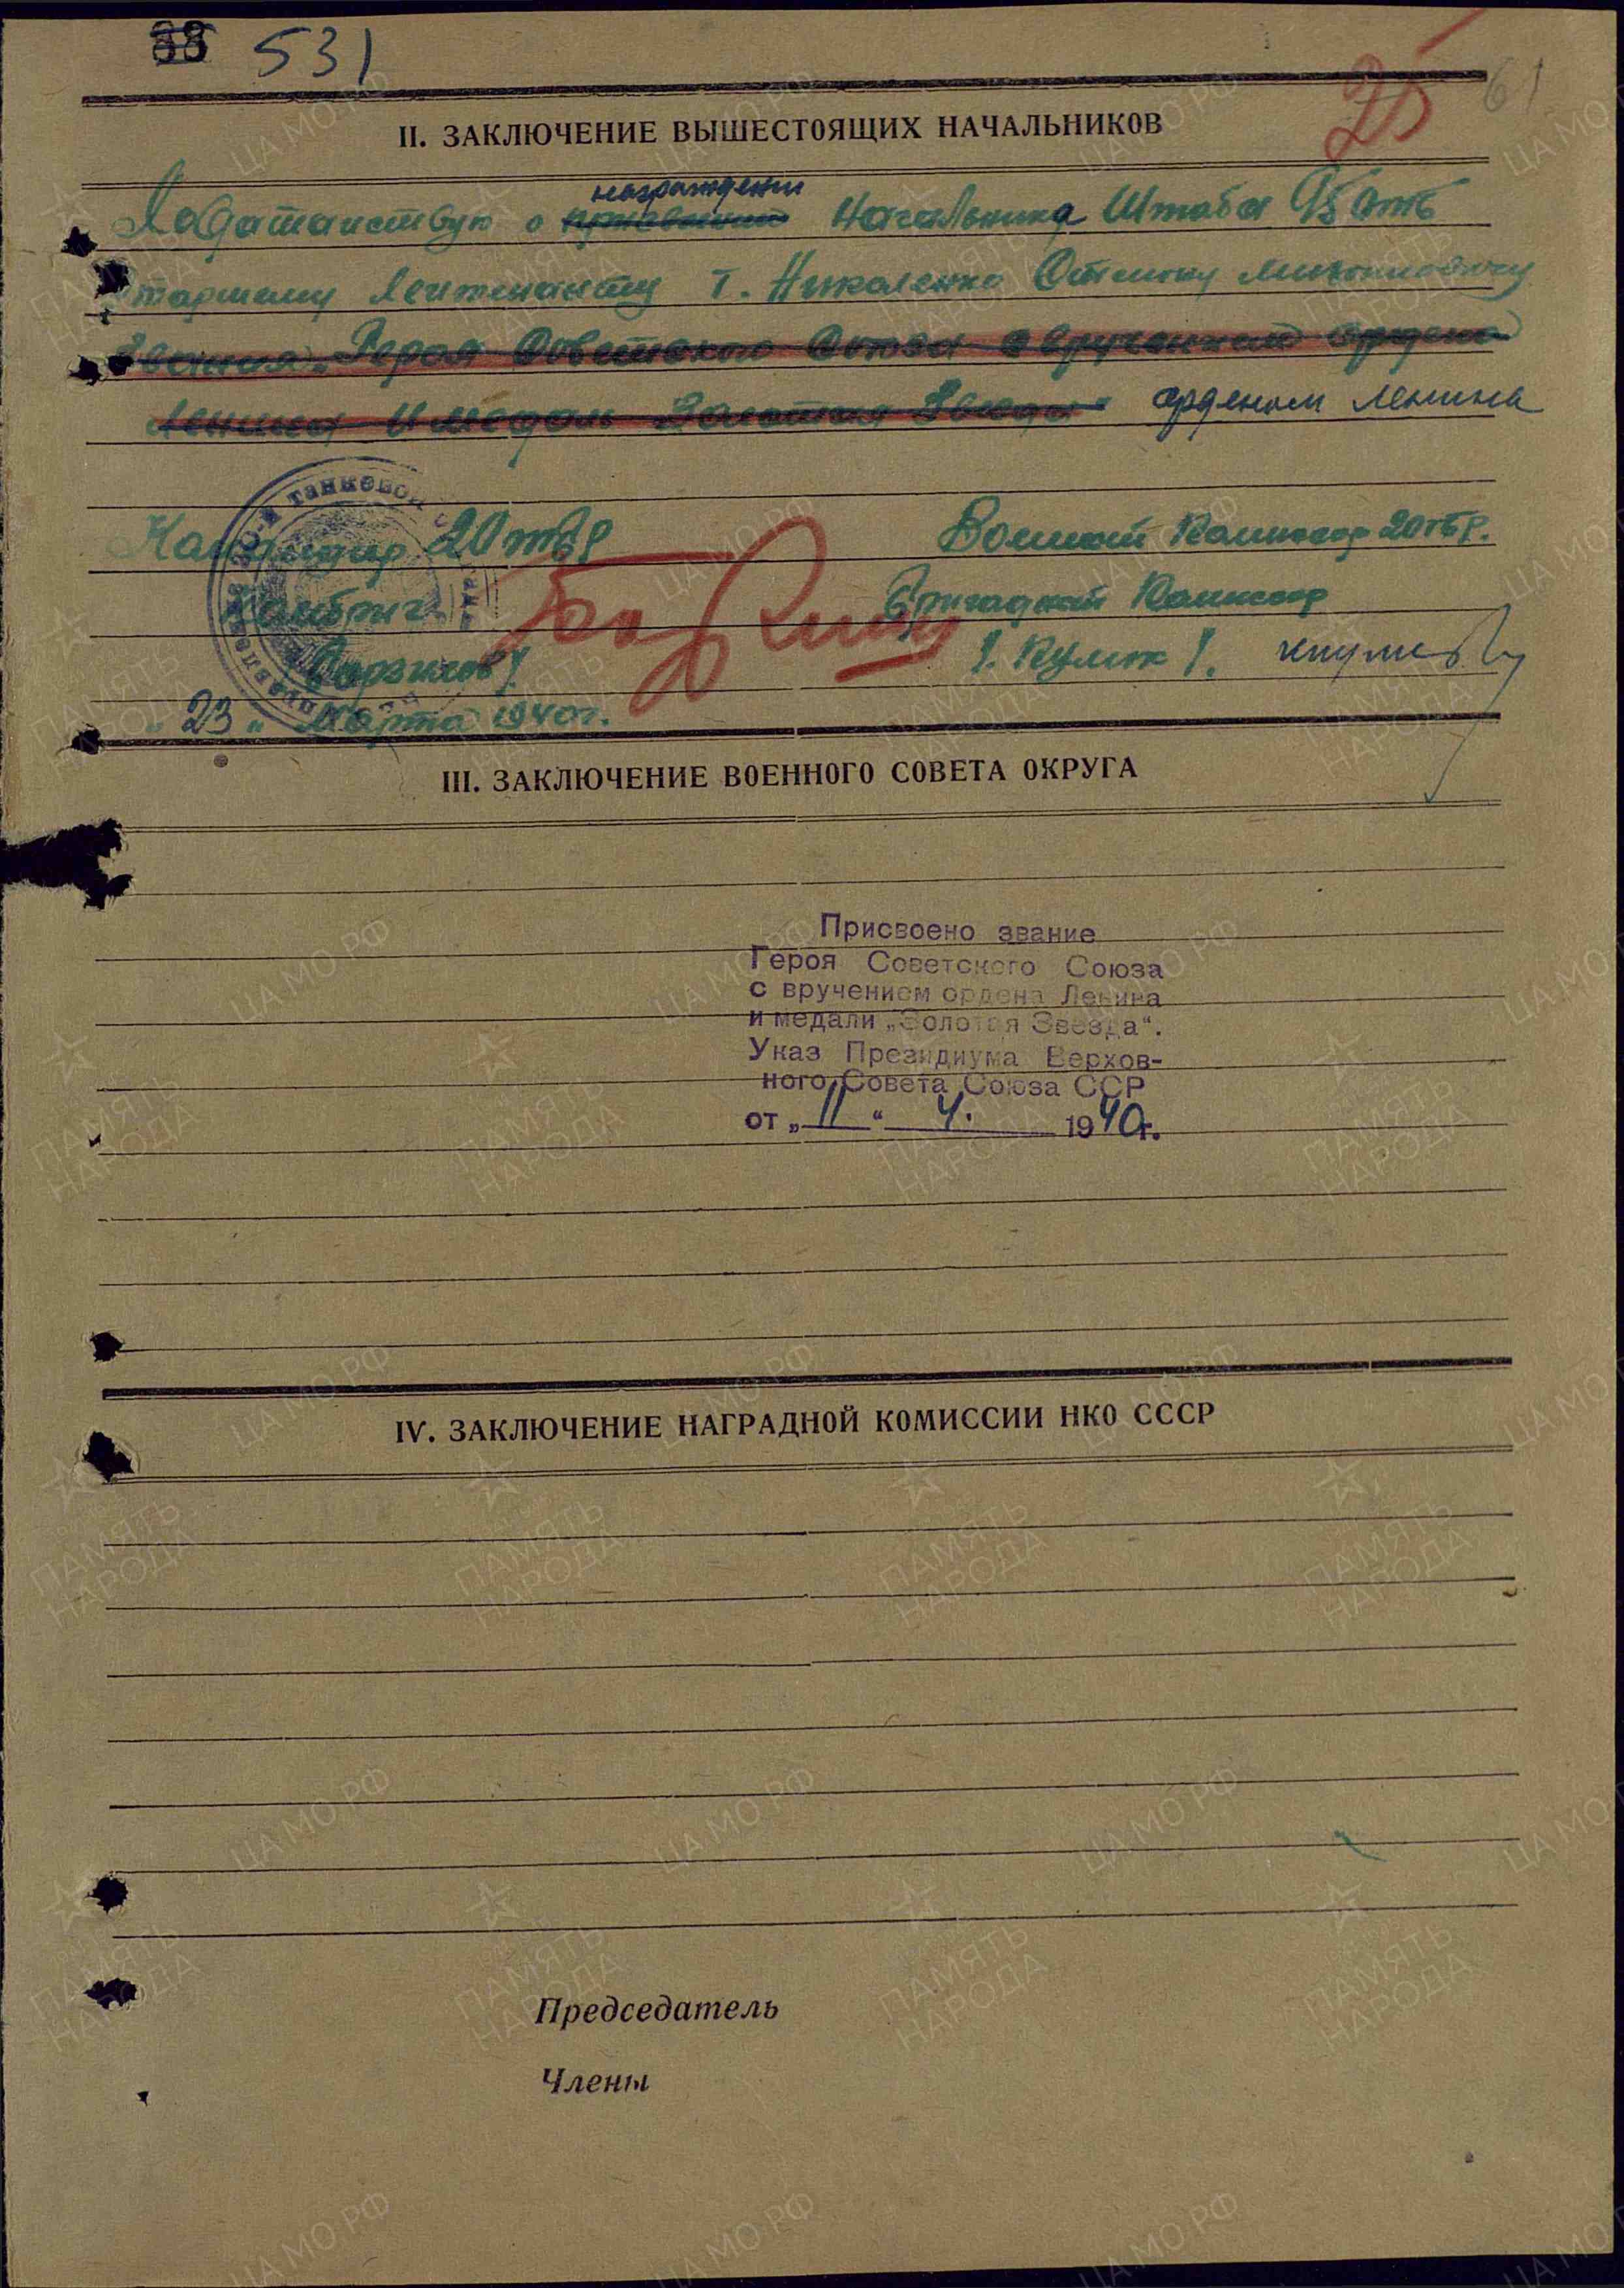 531
25
61
II. ЗАКЛЮЧЕНИЕ ВЫШЕСТОЯЩИХ НАЧАЛЬНИКОВ
награждении
Ходатайствую о Начальника Штаба 95 отб
Старшему Лейтенанту т. Николенко
звания "Героя Советского Союза с вручением ордена
Ленина и медаль Золотая Звезда" орденом Ленина
танковой
Командир 20 тбр Военный Комиссар 20 тбр.
Комбриг Бригадный Комиссар
/Борзилов/ /Кулик/.
"23" Марта 1940 г.
III. ЗАКЛЮЧЕНИЕ ВОЕННОГО СОВЕТА ОКРУГА
Присвоено звание
Героя Советского Союза
с вручением ордена Ленина
и медали „Золотая Звезда“.
Указ Президиума Верхов-
ного Совета Союза ССР
от „11“ 4. 1940г.
IV. ЗАКЛЮЧЕНИЕ НАГРАДНОЙ КОМИССИИ НКО СССР
Председатель
Члены
ЦА МО РФ
ПАМЯТЬ
НАРОДА